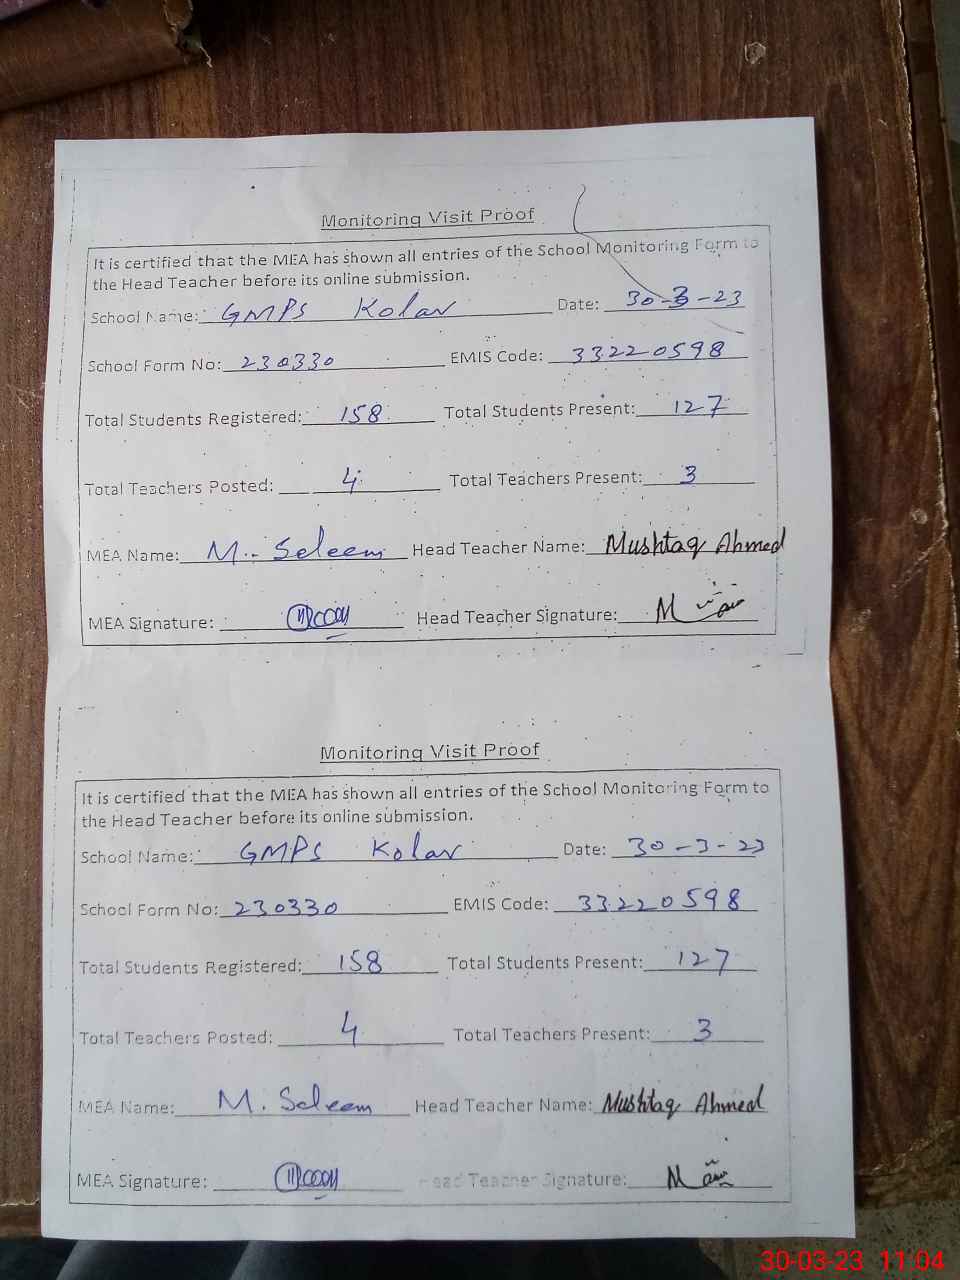 Monitoring Visit Proof
It is certified that the MEA has shown all entries of the School Monitoring Form to
the Head Teacher before its online submission.
School Name: GMPS Kolar Date: 30-3-23
School Form No: 230330 EMIS Code: 33220598
Total Students Registered: 158 Total Students Present: 127
Total Teachers Posted: 4 Total Teachers Present: 3
MEA Name: M. Seleem Head Teacher Name: Mushtaq Ahmed
MEA Signature: Head Teacher Signature:
Monitoring Visit Proof
It is certified that the MEA has shown all entries of the School Monitoring Form to
the Head Teacher before its online submission.
School Name: GMPS Kolar Date: 30-3-23
School Form No: 230330 EMIS Code: 33220598
Total Students Registered: 158 Total Students Present: 127
Total Teachers Posted: 4 Total Teachers Present: 3
MEA Name: M. Seleem Head Teacher Name: Mushtaq Ahmed
MEA Signature: Head Teacher Signature:
30-03-23 11:04